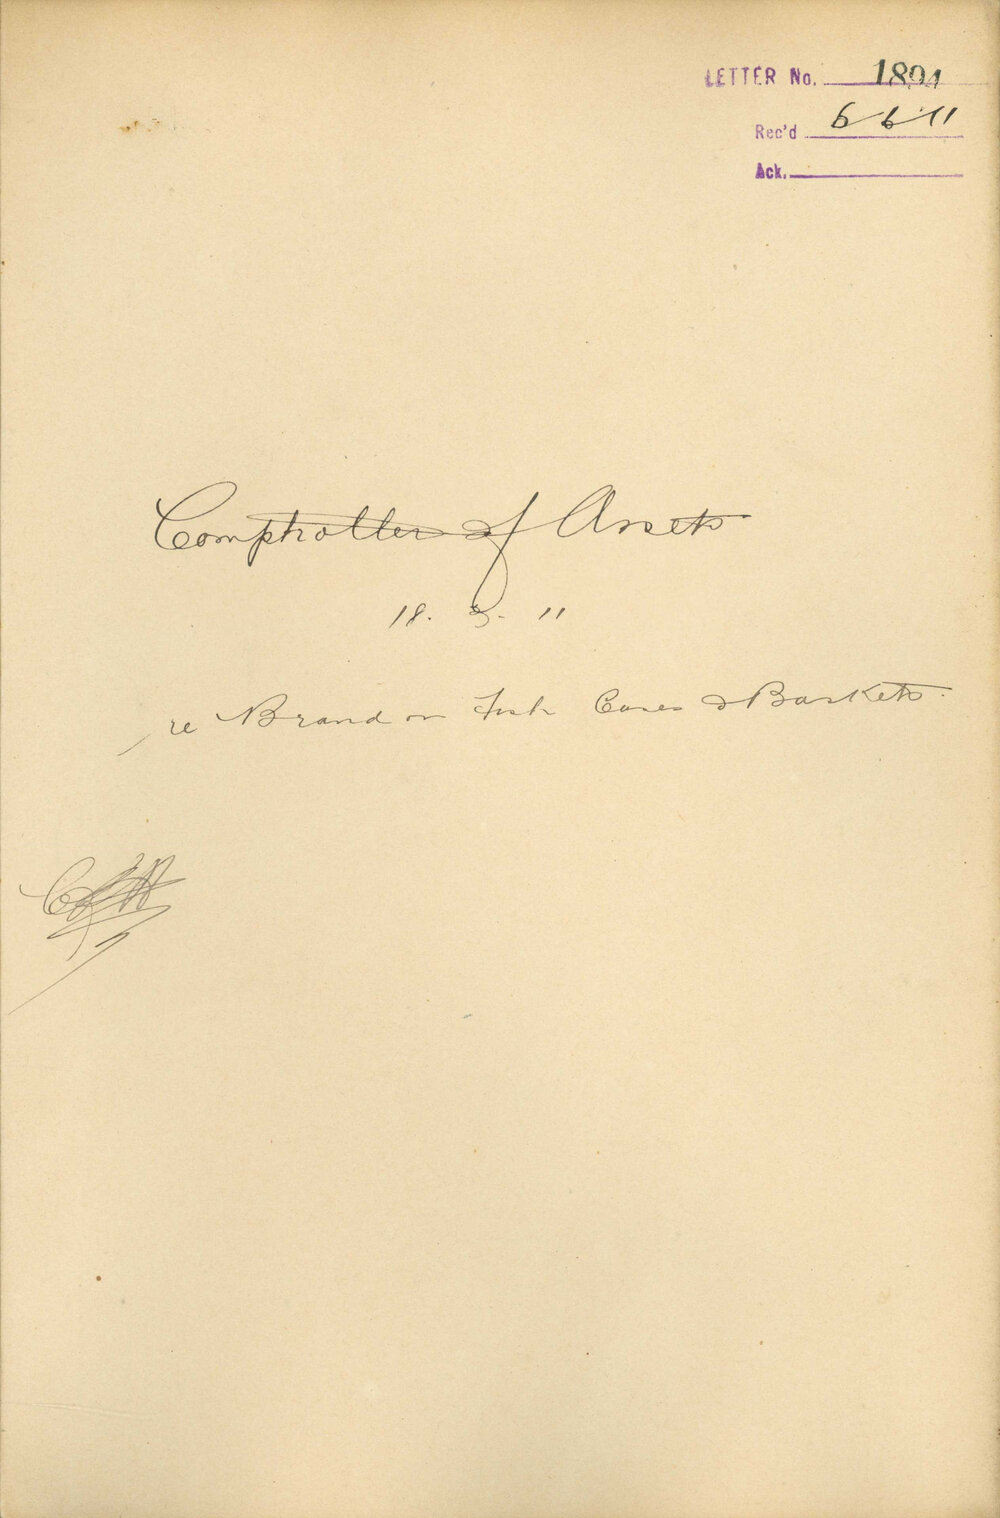 LETTER No. 1894
Rec'd 6 6 11
Ack.
Comptroller of Assets
18. 3. 11
re Brand on Fish Cases & Baskets.